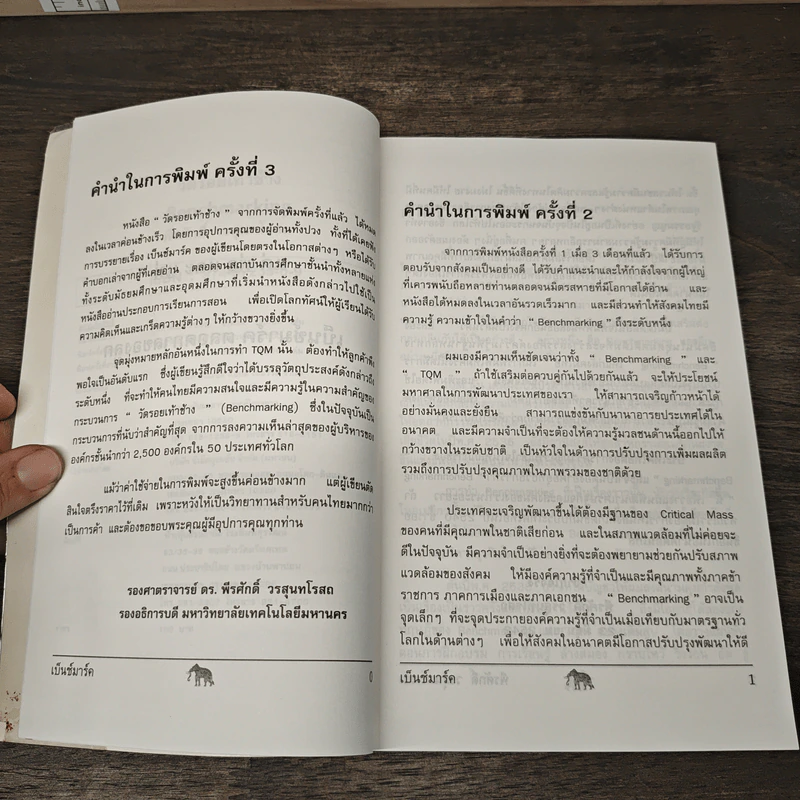 คำนำในการพิมพ์ ครั้งที่ 3
หนังสือ “ วัดรอยเท้าช้าง ” จากการจัดพิมพ์ครั้งที่แล้ว ได้หมด
ลงในเวลาค่อนข้างเร็ว โดยการอุปการคุณของผู้อ่านทั้งปวง ทั้งที่ได้เคยฟัง
การบรรยายเรื่อง เบ็นช์มาร์ค ของผู้เขียนโดยตรงในโอกาสต่างๆ หรือได้รับ
คำบอกเล่าจากผู้ที่เคยอ่าน ตลอดจนสถาบันการศึกษาชั้นนำทั้งหลายแห่ง
ทั้งระดับมัธยมศึกษาและอุดมศึกษาที่เริ่มนำหนังสือดังกล่าวไปใช้เป็น
หนังสืออ่านประกอบการเรียนการสอน เพื่อเปิดโลกทัศน์ให้ผู้เรียนได้รับ
ความคิดเห็นและเกร็ดความรู้ต่างๆ ให้กว้างขวางยิ่งขึ้น
จุดมุ่งหมายหลักอันหนึ่งในการทำ TQM นั้น ต้องทำให้ลูกค้าพึง
พอใจเป็นอันดับแรก ซึ่งผู้เขียนรู้สึกดีใจว่าได้บรรลุวัตถุประสงค์ดังกล่าวถึง
ระดับหนึ่ง ที่จะทำให้คนไทยมีความสนใจและมีความรู้ในความสำคัญของ
กระบวนการ “ วัดรอยเท้าช้าง ” (Benchmarking) ซึ่งในปัจจุบันเป็น
กระบวนการที่นับว่าสำคัญที่สุด จากการลงความเห็นล่าสุดของผู้บริหารของ
องค์กรชั้นนำกว่า 2,500 องค์กรใน 50 ประเทศทั่วโลก
แม้ว่าค่าใช้จ่ายในการพิมพ์จะสูงขึ้นค่อนข้างมาก แต่ผู้เขียนตัด
สินใจตรึงราคาไว้ที่เดิม เพราะหวังให้เป็นวิทยาทานสำหรับคนไทยมากกว่า
เป็นการค้า และต้องขอขอบพระคุณผู้มีอุปการคุณทุกท่าน
รองศาตราจารย์ ดร. พีรศักดิ์ วรสุนทโรสถ
รองอธิการบดี มหาวิทยาลัยเทคโนโลยีมหานคร
เบ็นช์มาร์ค 0
คำนำในการพิมพ์ ครั้งที่ 2
จากการพิมพ์หนังสือครั้งที่ 1 เมื่อ 3 เดือนที่แล้ว ได้รับการ
ตอบรับจากสังคมเป็นอย่างดี ได้รับคำแนะนำและให้กำลังใจจากผู้ใหญ่
ที่เคารพนับถือหลายท่านตลอดจนมิตรสหายที่มีโอกาสได้อ่าน และ
หนังสือได้หมดลงในเวลาอันรวดเร็วมาก และมีส่วนทำให้สังคมไทยมี
ความรู้ ความเข้าใจในคำว่า “ Benchmarking ” ถึงระดับหนึ่ง
ผมเองมีความเห็นชัดเจนว่าทั้ง “ Benchmarking ” และ
“ TQM ” ถ้าใช้เสริมต่อควบคู่กันไปด้วยกันแล้ว จะให้ประโยชน์
มหาศาลในการพัฒนาประเทศของเรา ให้สามารถเจริญก้าวหน้าได้
อย่างมั่นคงและยั่งยืน สามารถแข่งขันกับนานาอารยประเทศได้ใน
อนาคต และมีความจำเป็นที่จะต้องให้ความรู้มวลชนด้านนี้ออกไปให้
กว้างขวางในระดับชาติ เป็นหัวใจในด้านการปรับปรุงการเพิ่มผลผลิต
รวมถึงการปรับปรุงคุณภาพในภาพรวมของชาติด้วย
ประเทศจะเจริญพัฒนาขึ้นได้ต้องมีฐานของ Critical Mass
ของคนที่มีคุณภาพในชาติเสียก่อน และในสภาพแวดล้อมที่ไม่ค่อยจะ
ดีในปัจจุบัน มีความจำเป็นอย่างยิ่งที่จะต้องพยายามช่วยกันปรับสภาพ
แวดล้อมของสังคม ให้มีองค์ความรู้ที่จำเป็นและมีคุณภาพทั้งภาคข้า
ราชการ ภาคการเมืองและภาคเอกชน “ Benchmarking ” อาจเป็น
จุดเล็กๆ ที่จะจุดประกายองค์ความรู้ที่จำเป็นเมื่อเทียบกับมาตรฐานทั่ว
โลกในด้านต่างๆ เพื่อให้สังคมในอนาคตมีโอกาสปรับปรุงพัฒนาให้ดี
เบ็นช์มาร์ค 1